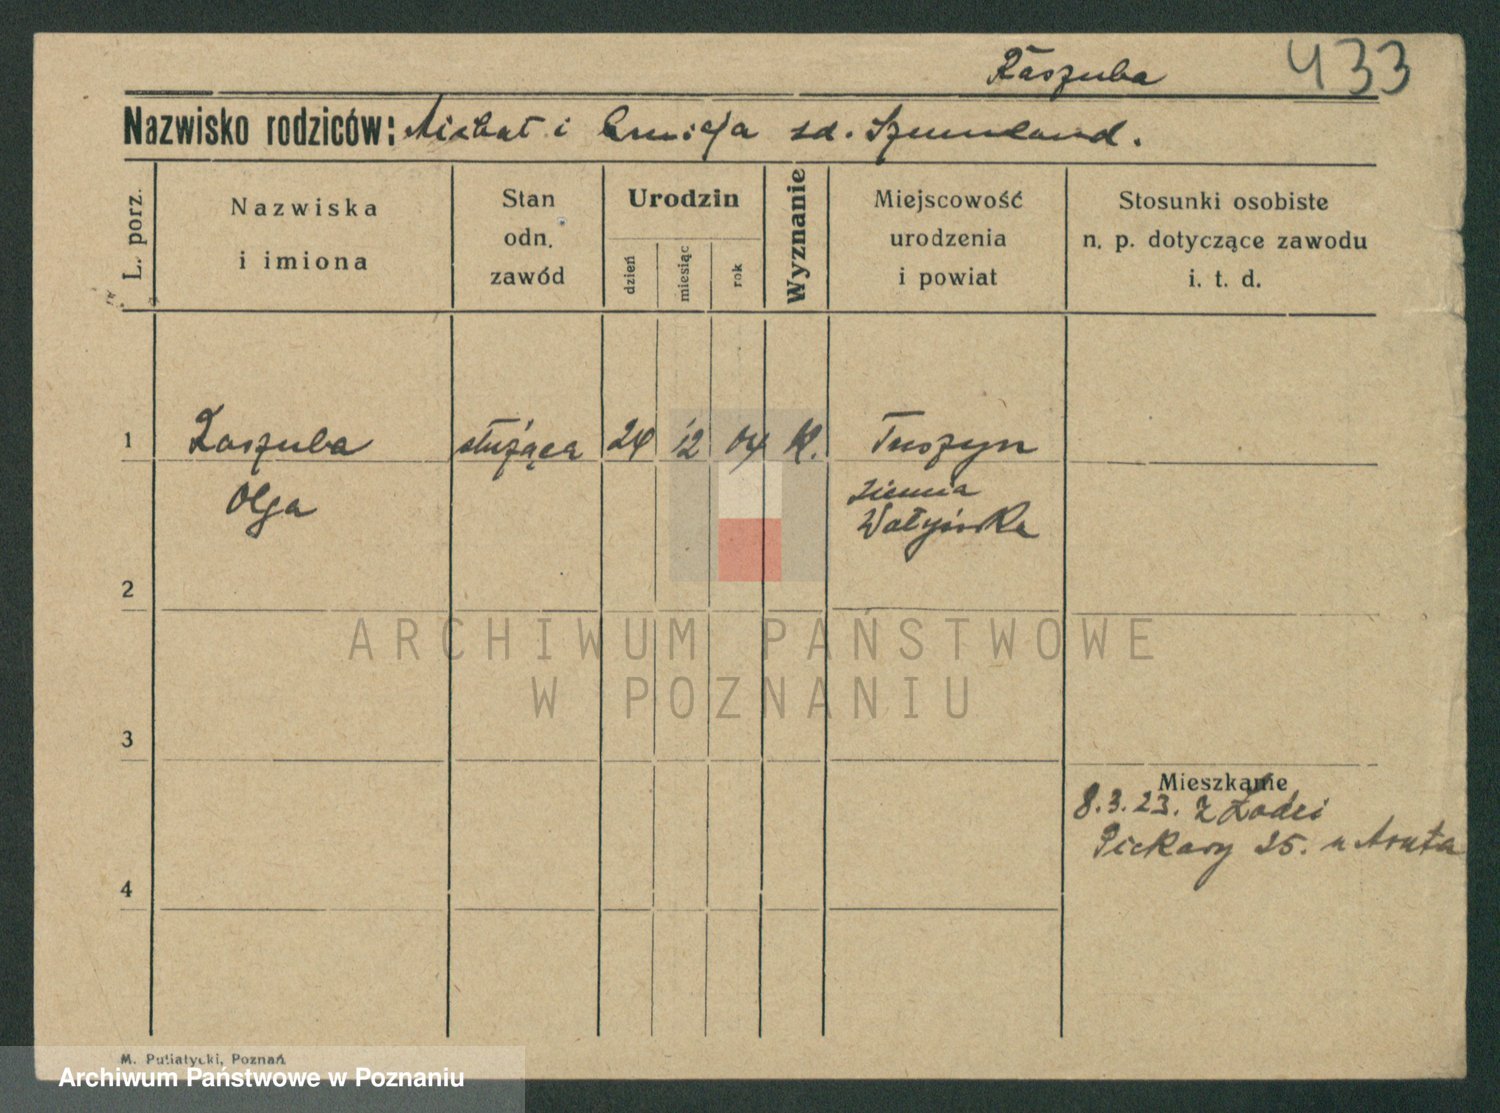 Kaszuba
433
Nazwisko rodziców: Michał i sd.
L. porz.
Nazwiska
i imiona
Stan
odn.
zawód
Urodzin
dzień
miesiąc
rok
Wyznanie
Miejscowość
urodzenia
i powiat
Stosunki osobiste
n. p. dotyczące zawodu
i. t. d.
1
Kaszuba służąca 24 12 04 K. Tuszyn
Olga
ziemia
Wołyńska
2
ARCHIWUM PAŃSTWOWE
W POZNANIU
3
Mieszkanie
8.3.23. z Łodzi
Piekary 25. u
4
M. Putiatycki, Poznań
Archiwum Państwowe w Poznaniu